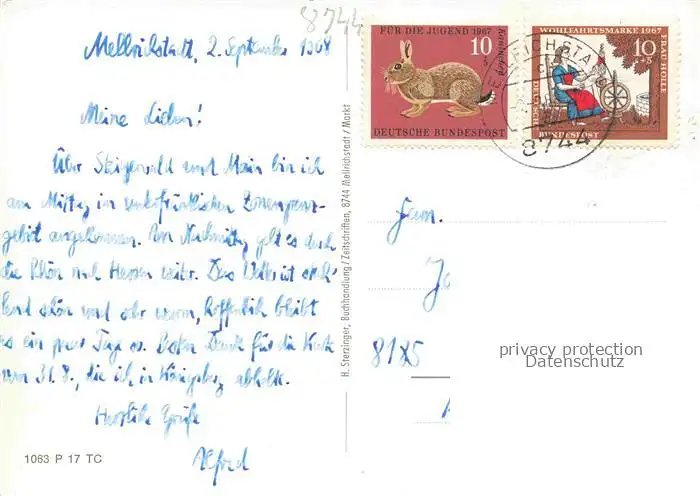 8744
Mellrichstadt, 2. September 1968
Meine Lieben!
Über Steigerwald und Main bin ich
am Mittag im unterfränkischen Zonengrenz-
gebiet angekommen. Am Nachmittag geht es durch
die Rhön nach Hessen weiter. Das Wetter ist strah-
lend schön und sehr warm, hoffentlich bleibt
es ein paar Tage so. Besten Dank für die Karte
vom 31.8., die ich in Königsberg abholte.
Herzliche Grüße
Alfred
1063 P 17 TC
H. Sterzinger, Buchhandlung / Zeitschriften, 8744 Mellrichstadt / Markt
FÜR DIE JUGEND 1967
10
+5
Kaninchen
DEUTSCHE BUNDESPOST
WOHLFAHRTSMARKE 1967
10
+5
FRAU HOLLE
BUNDESPOST
8744
Fam.
8185
privacy protection
Datenschutz